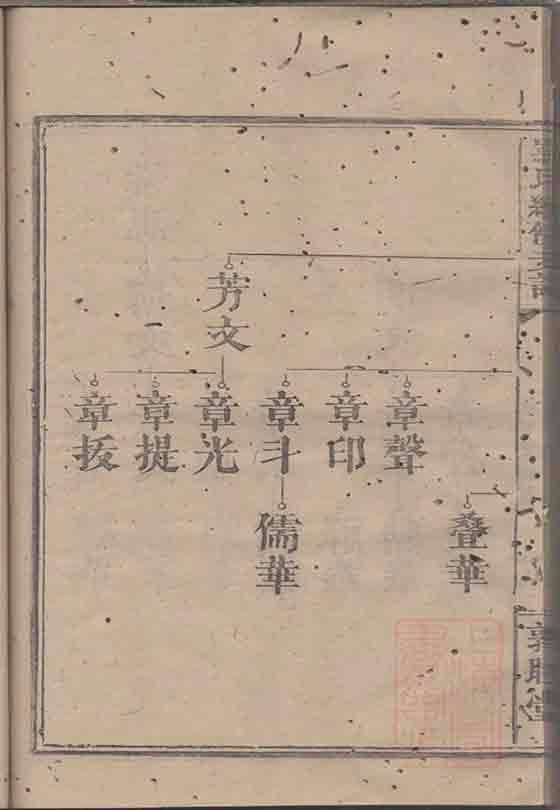 芳文
章聲
章印
章斗
章光
章提
章扳
疊華
儒華